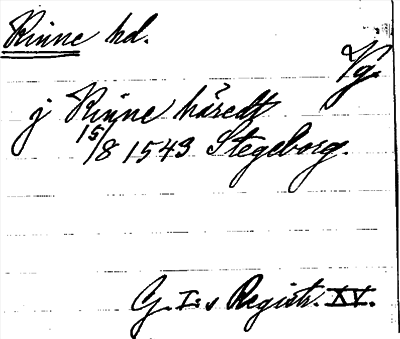 Kinne hd.
Vg.
j Kinne häredt
15/8 1543 Stegeborg.
G. I:s Registr. XV.